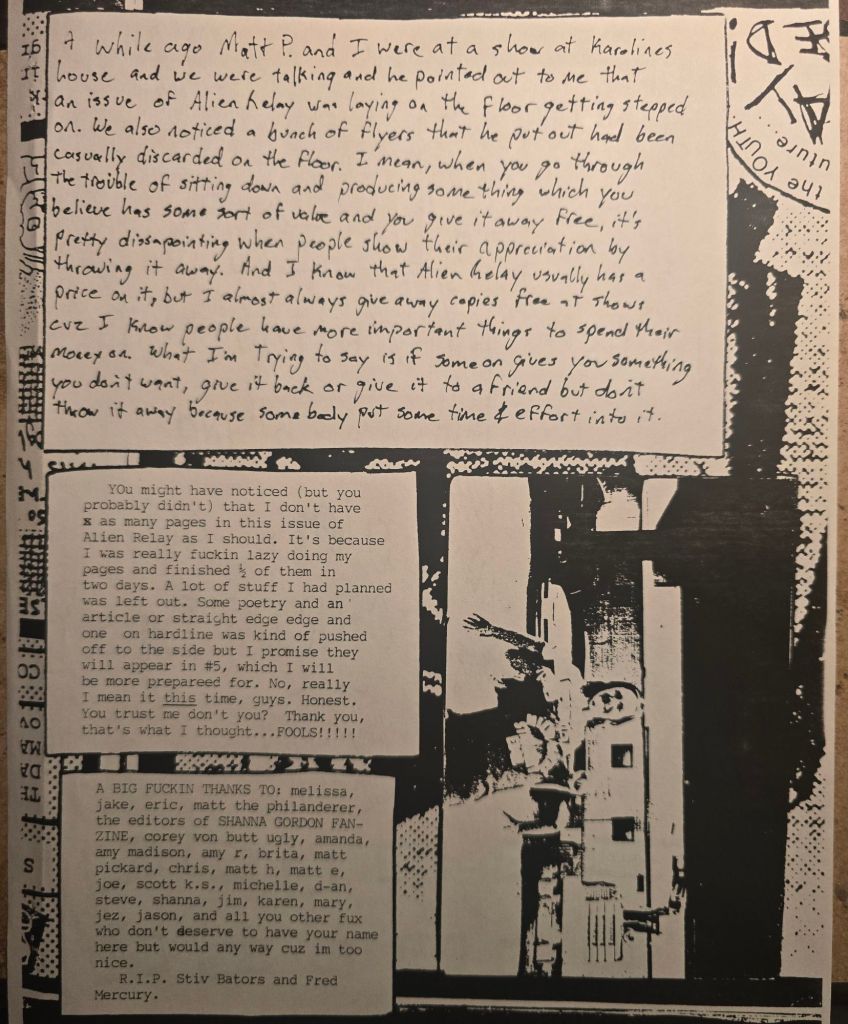 A while ago Matt P. and I were at a show at Karolines
house and we were talking and he pointed out to me that
an issue of Alien Relay was laying on the floor getting stepped
on. We also noticed a bunch of flyers that he put out had been
casually discarded on the floor. I mean, when you go through
the trouble of sitting down and producing something which you
believe has some sort of value and you give it away free, it's
pretty dissapointing when people show their appreciation by
throwing it away. And I know that Alien Relay usually has a
price on it, but I almost always give away copies free at shows
cuz I know people have more important things to spend their
money on. What I'm Trying to say is if someon gives you something
you don't want, give it back or give it to a friend but don't
throw it away because somebody put some time & effort into it.
the YOUTH
uture...
You might have noticed (but you
probably didn't) that I don't have
x as many pages in this issue of
Alien Relay as I should. It's because
I was really fuckin lazy doing my
pages and finished ½ of them in
two days. A lot of stuff I had planned
was left out. Some poetry and an
article or straight edge edge and
one on hardline was kind of pushed
off to the side but I promise they
will appear in #5, which I will
be more prepareed for. No, really
I mean it this time, guys. Honest.
You trust me don't you? Thank you,
that's what I thought...FOOLS!!!!!
A BIG FUCKIN THANKS TO: melissa,
jake, eric, matt the philanderer,
the editors of SHANNA GORDON FAN-
ZINE, corey von butt ugly, amanda,
amy madison, amy r, brita, matt
pickard, chris, matt h, matt e,
joe, scott k.s., michelle, d-an,
steve, shanna, jim, karen, mary,
jez, jason, and all you other fux
who don't deserve to have your name
here but would any way cuz im too
nice.
R.I.P. Stiv Bators and Fred
Mercury.